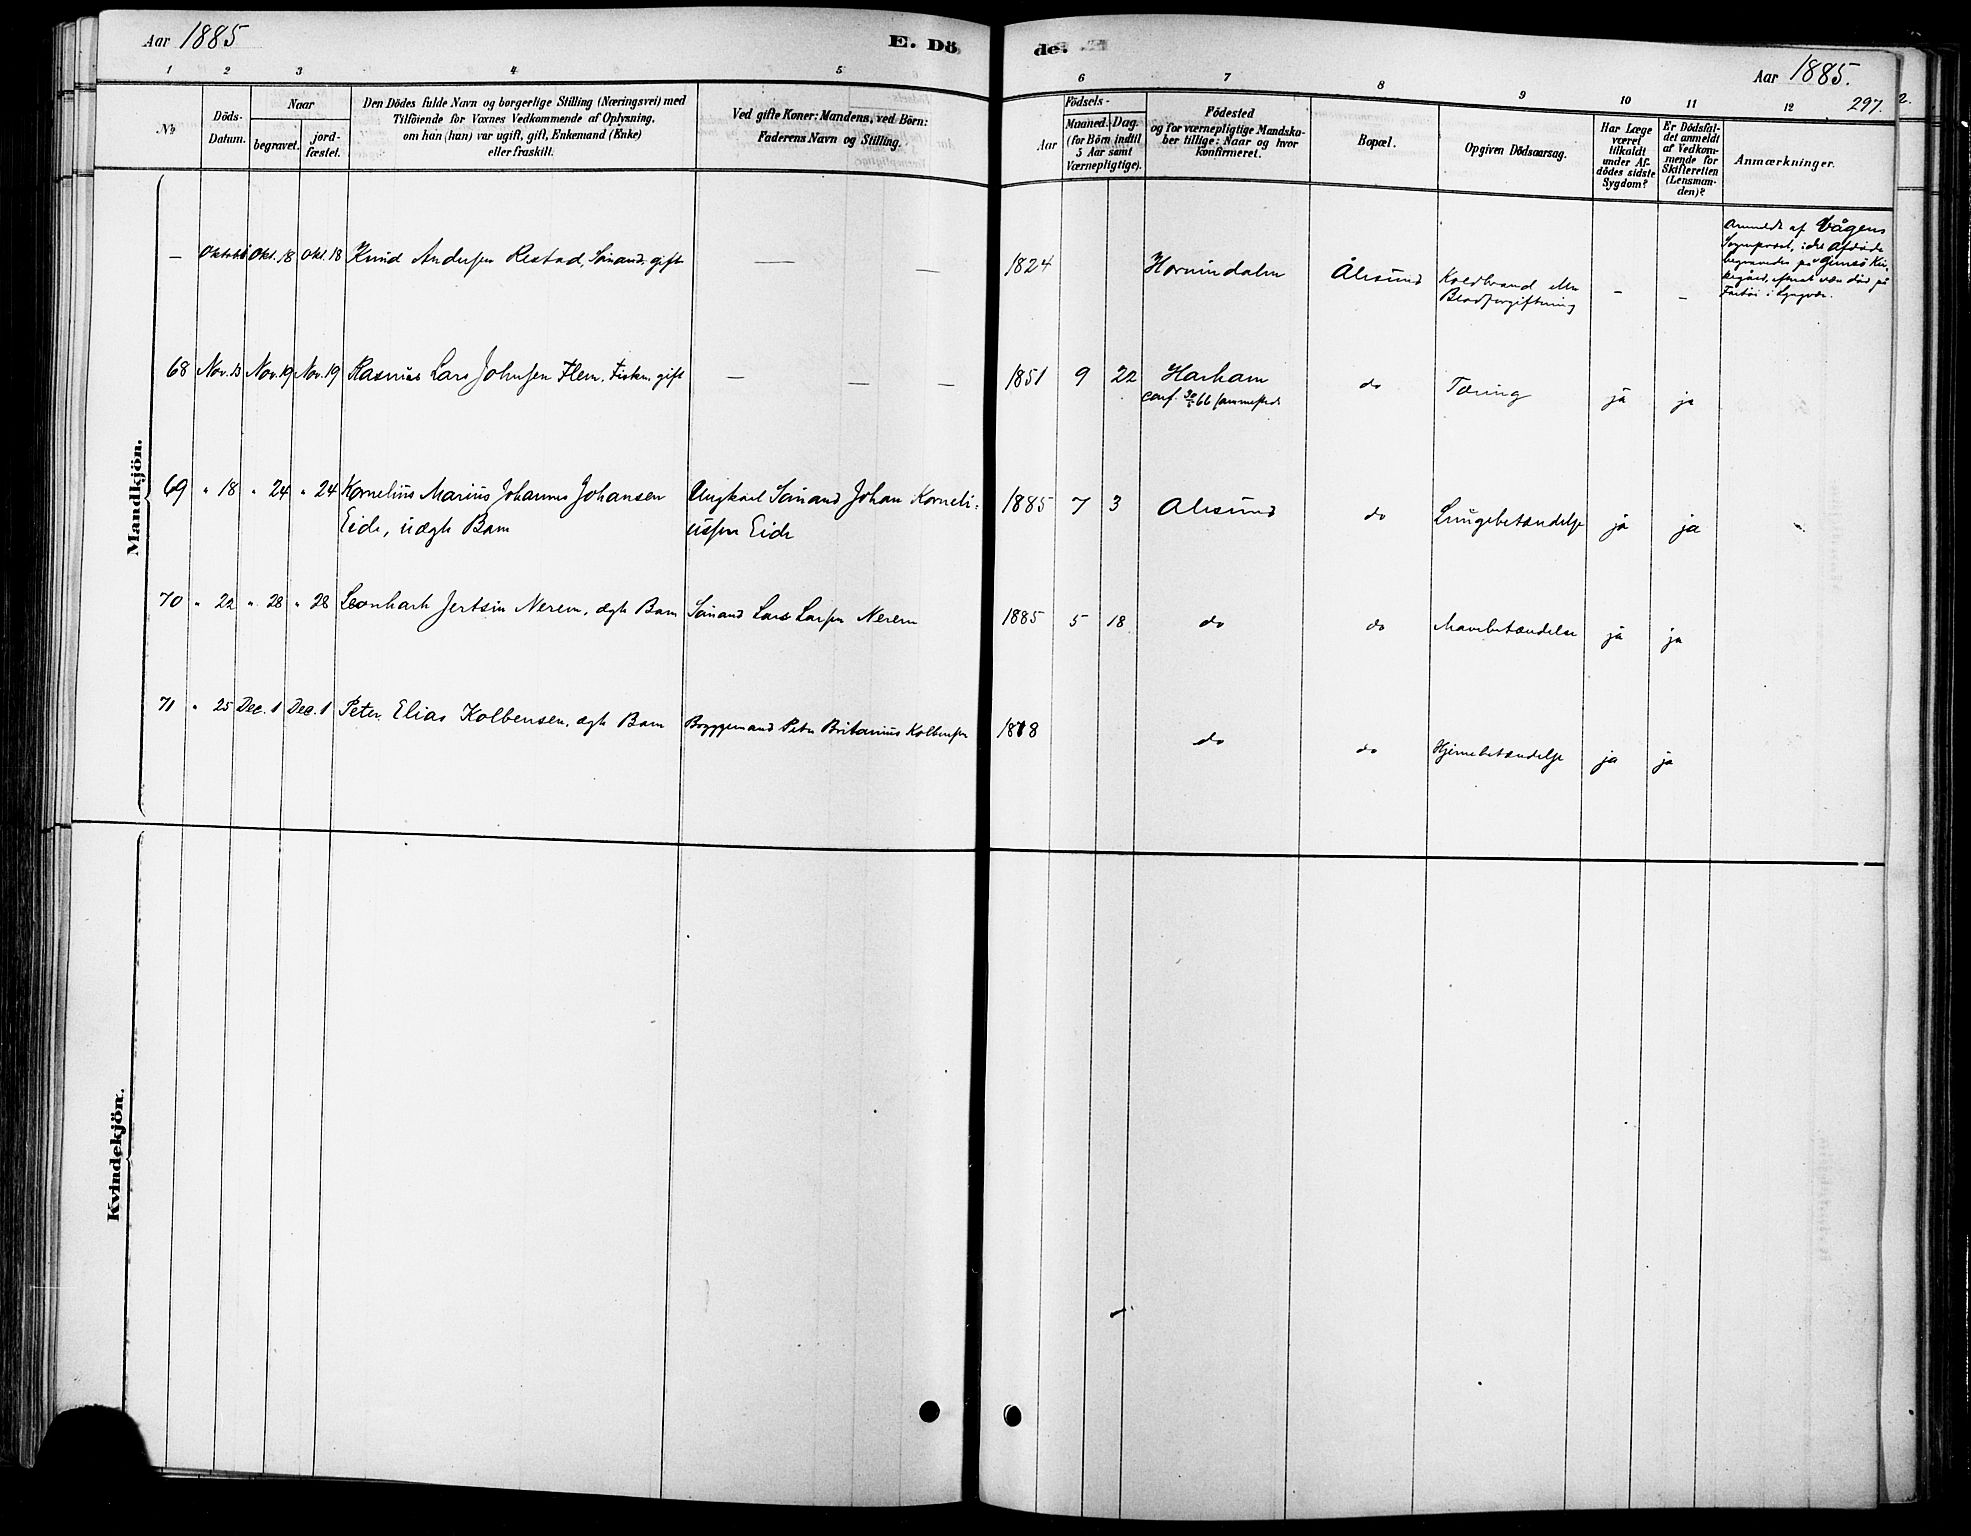 Aar 1885
E. Dö
de.
Aar 1885.
297.
2.
1 2 3 4 5 6 7 8 9 10 11 12
No
Döds-
Datum.
Naar
begravet.
jord-
fæstet.
Den Dödes fulde Navn og borgerlige Stilling (Næringsvei) med
Tilföiende for Voxnes Vedkommende af Oplysning,
om han (hun) var ugift, gift, Enkemand (Enke)
eller fraskilt.
Ved gifte Koner: Mandens, ved Börn:
Faderens Navn og Stilling.
Födsels-
Aar
Maaned.
Dag.
(for Börn indtil
5 Aar samt
Værnepligtige).
Födested
og for værnepligtige Mandska-
ber tillige: Naar og hvor
konfirmeret.
Bopæl.
Opgiven Dödsaarsag.
Har Læge
været
tilkaldt
under Af-
dödes sidste
Sygdom?
Er Dödsfal-
det anmeldt
af Vedkom-
mende for
Skifteretten
(Lensman-
den)?
Anmærkninger.
Mandkjön.
— Okt. 18 Okt. 18 Knud Andersen Restad, Sømand, gift — — 1824 Hornindalen Ålesund Koldbrand eller
Blodforgiftning — —
Anmeldt af Vågens
Sogneprest, i det Afdøde
begravedes på Gimsø Kir-
kegård, efterat være død på
Fartøi i
68 Nov. 13 Nov. 19 Nov. 19 Rasmus Lars Johnsen Flem, Fisker, gift — — — 1851 9 22 Harham do Tæring ja ja
conf. 66 sammesteds
69 " 18 " 24 " 24 Kornelius Marius Johannes Johansen Ungkarl Sømand Johan Korneli- 1885 7 3 Alesund do Lungebetændelse ja ja
Eide, uægte Barn ussen Eide
70 " 22 " 28 " 28 Leonhart Jertsin Nerem, ægte Barn Sømand Lars Larsen Nerem 1885 5 18 do do Mavebetændelse ja ja
71 " 25 Dec. 1 Dec. 1 Peter Elias Kolbensen, ægte Barn Bryggemand Peter Britanius Kolbensen 1878 do do Hjernebetændelse ja ja
Kvindekjön.